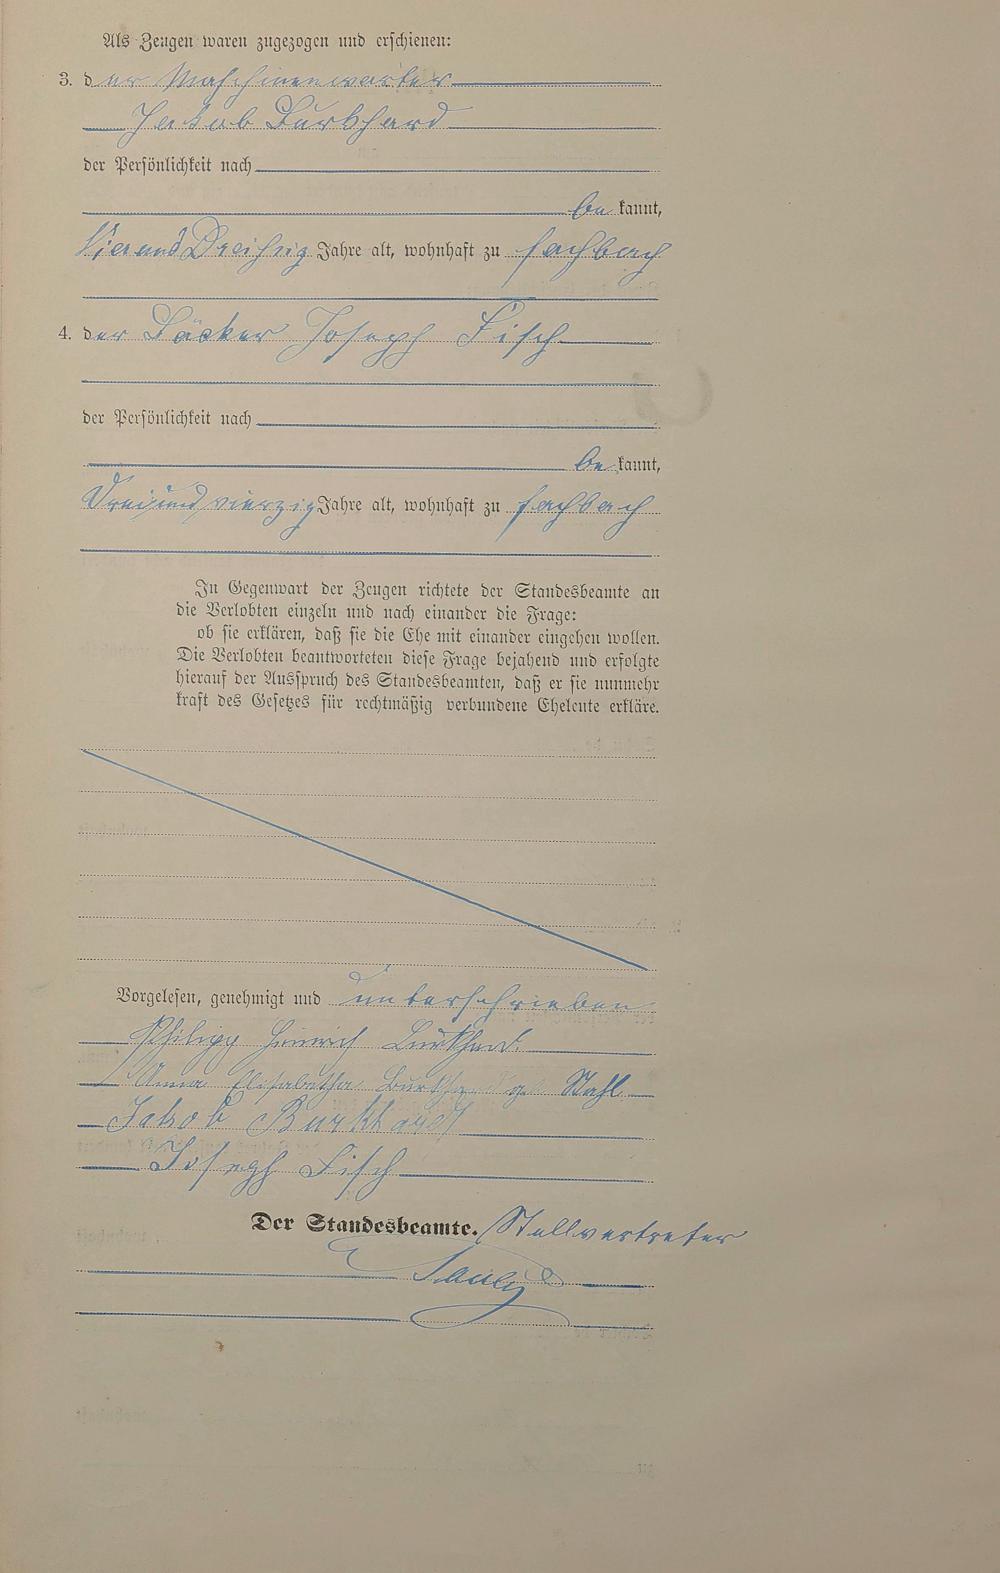 Als Zeugen waren zugezogen und erschienen:
3. der Maschinenwarter
Jakob Burkhard
der Persönlichkeit nach
be kannt,
Vierund Dreißig Jahre alt, wohnhaft zu Fachbach
4. der Bäcker Joseph Fisch
der Persönlichkeit nach
be kannt,
Dreiundvierzig Jahre alt, wohnhaft zu Fachbach
In Gegenwart der Zeugen richtete der Standesbeamte an
die Verlobten einzeln und nach einander die Frage:
ob sie erklären, daß sie die Ehe mit einander eingehen wollen.
Die Verlobten beantworteten diese Frage bejahend und erfolgte
hierauf der Ausspruch des Standesbeamten, daß er sie nunmehr
kraft des Gesetzes für rechtmäßig verbundene Eheleute erkläre.
Vorgelesen, genehmigt und unterschrieben
Philipp Heinrich Burkhard.
Anna Elisabetha Burkhard ge Stahl
Jakob Burkhardt
Joseph Fisch
Der Standesbeamte. Stellvertreter